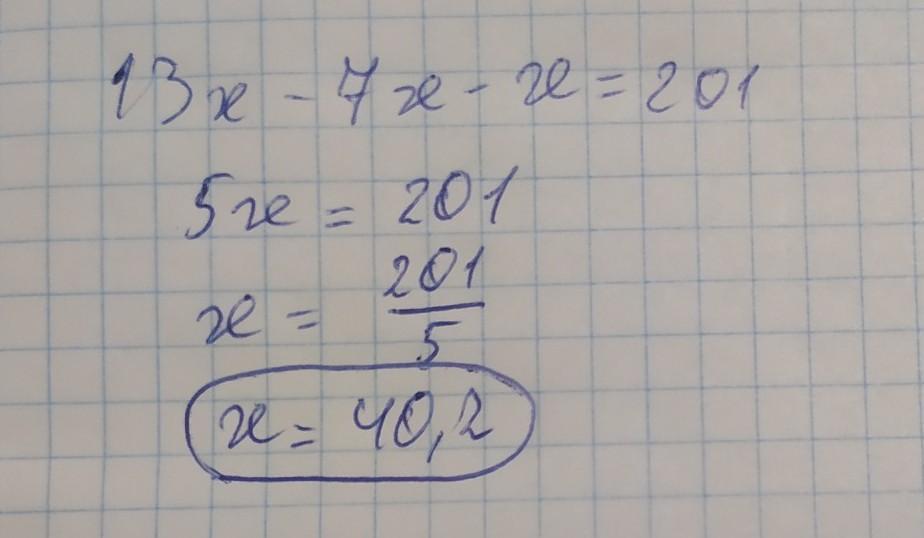 13x - 7x - x = 201
5x = 201
x = 201/5
x = 40,2